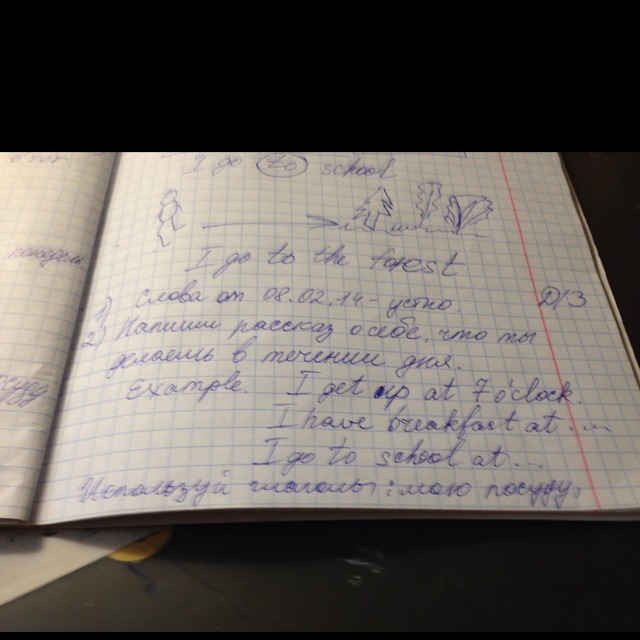 I go to school
I go to the forest
1) Слова от 08.02.14 - устно. Д/З
2) Напиши рассказ о себе, что ты
делаешь в течении дня.
Example. I get up at 7 o'clock.
I have breakfast at ...
I go to school at ...
Используй глаголы: мою посуду,